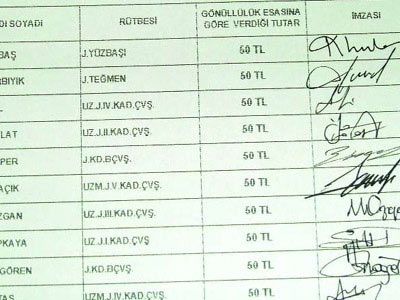 DI SOYADI RÜTBESİ GÖNÜLLÜLÜK ESASINA GÖRE VERDİĞİ TUTAR İMZASI
BAŞ J.YÜZBAŞI 50 TL
RBIYIK J.TEĞMEN 50 TL
UZ.J.IV.KAD.ÇVŞ. 50 TL
LAT UZ.J.II.KAD.ÇVŞ. 50 TL
PER J.KD.BÇVŞ. 50 TL
AÇIK UZM.J.V.KAD.ÇVŞ. 50 TL
ZGAN UZ.J.III.KAD.ÇVŞ. 50 TL
PKAYA UZ.J.I.KAD.ÇVŞ 50 TL
GÖREN J.KD.BÇVŞ 50 TL
TAŞ UZM.J.IV.KAD.ÇVŞ. 50 TL